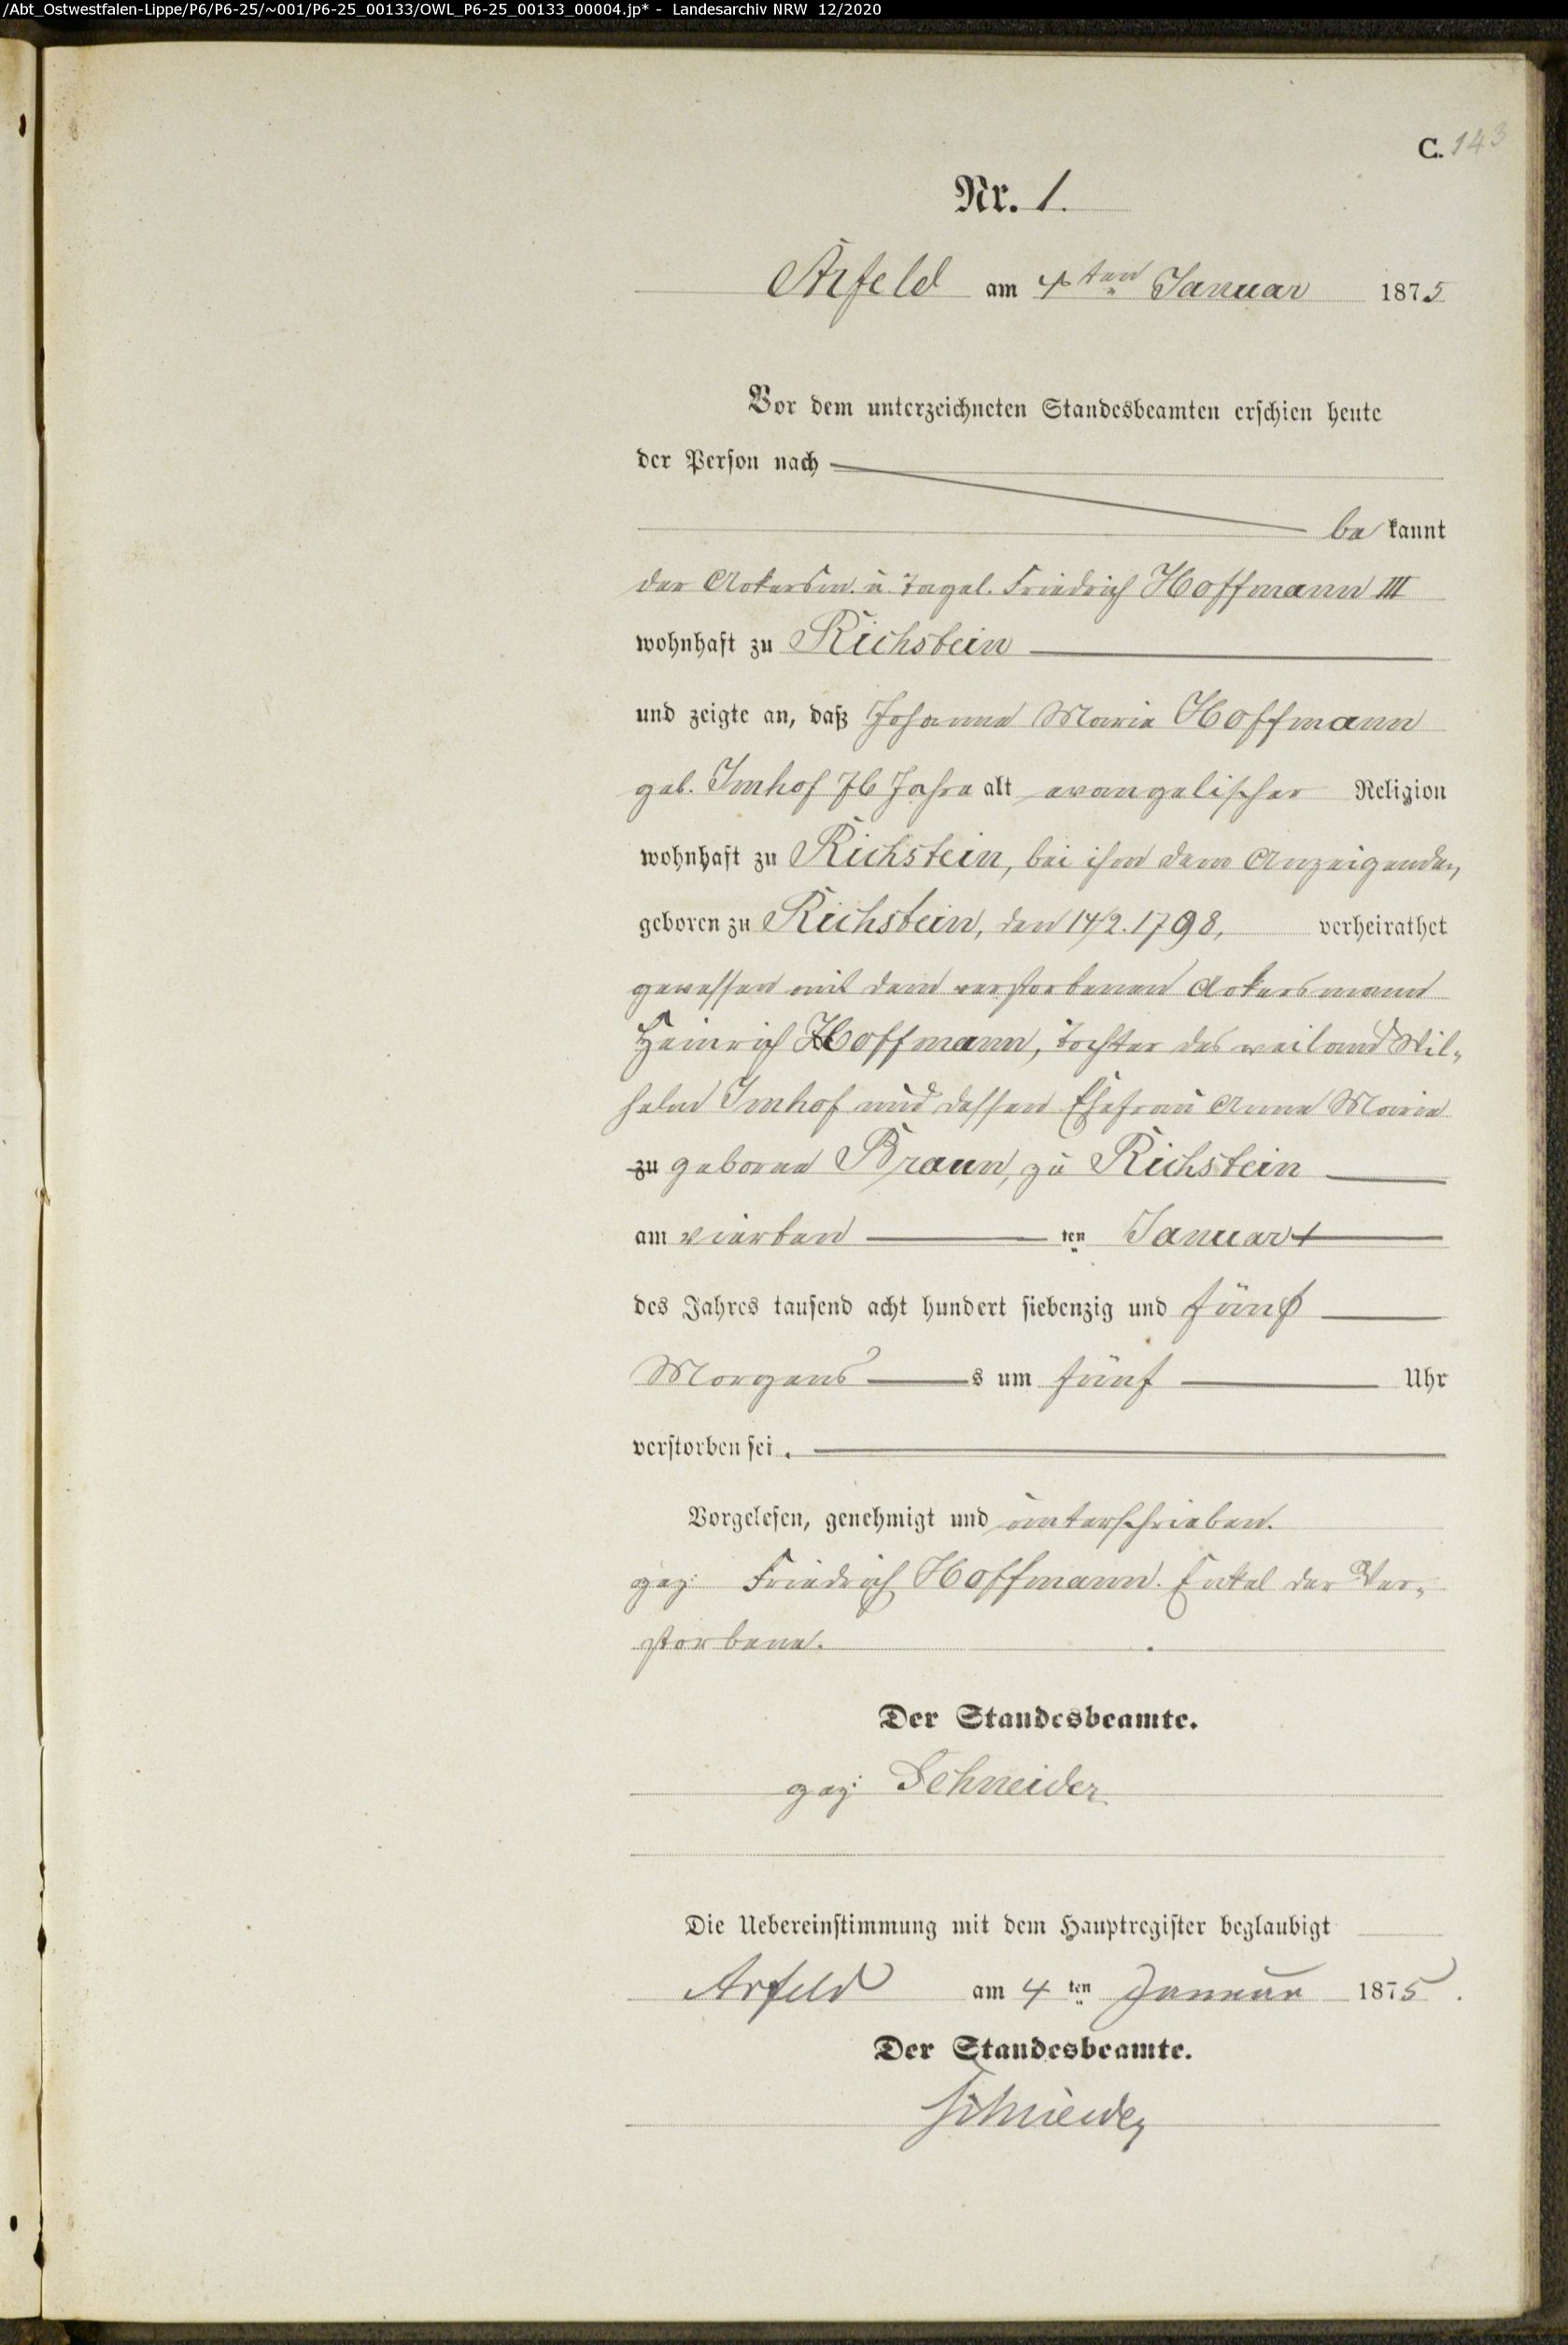 /Abt_Ostwestfalen-Lippe/P6/P6-25/~001/P6-25_00133/OWL_P6-25_00133_00004.jp* - Landesarchiv NRW 12/2020
C. 143
Nr. 1.
Arfeld am 4ten Januar 1875
Vor dem unterzeichneten Standesbeamten erschien heute
der Person nach
be kannt
der Ackersm. u. Tagel. Friedrich Hoffmann III
wohnhaft zu Richstein
und zeigte an, daß Johanna Maria Hoffmann
geb. Imhof 76 Jahre alt evangelischer Religion
wohnhaft zu Richstein, bei ihm dem Anzeigenden,
geboren zu Richstein, den 14/2. 1798, verheirathet
gewessen mit dem verstorbenen Ackersmann
Heinrich Hoffmann, Tochter des weiland Wil-
helm Imhof und dessen Ehefrau Anna Maria
zu geborne Braun, zu Richstein
am vierten ten Januar
des Jahres tausend acht hundert siebenzig und fünf
Morgens s um fünf Uhr
verstorben sei.
Vorgelesen, genehmigt und unterschrieben.
gez: Friedrich Hoffmann. Enkel der Ver-
storbene.
Der Standesbeamte.
gez: Schneider
Die Uebereinstimmung mit dem Hauptregister beglaubigt
Arfeld am 4 ten Januar 1875.
Der Standesbeamte.
Schneider